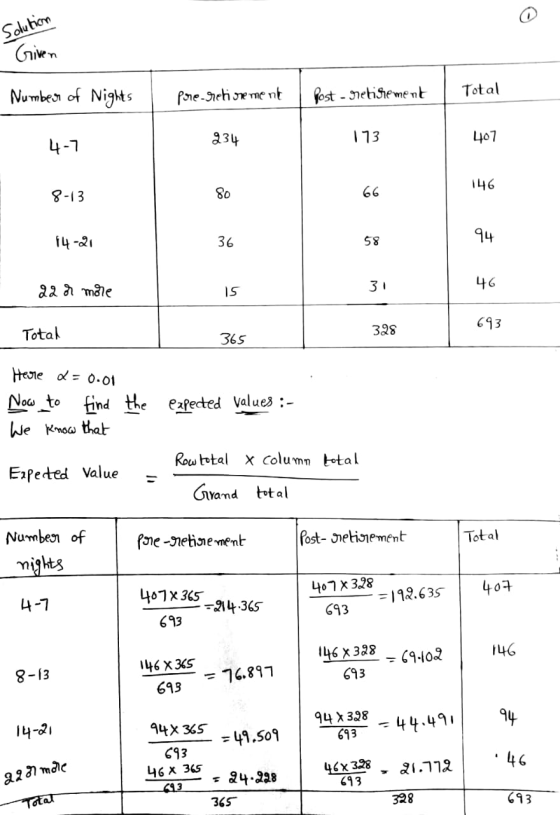 ①
Solution
Given
Number of Nights Pre-retirement Post-retirement Total
4-7 234 173 407
8-13 80 66 146
14-21 36 58 94
22 or more 15 31 46
Total 365 328 693
Here α = 0.01
Now to find the expected values :-
We know that
Expected Value = Row total × column total / Grand total
Number of nights Pre-retirement Post-retirement Total
4-7 407×365/693 = 214.365 407×328/693 = 192.635 407
8-13 146×365/693 = 76.897 146×328/693 = 69.102 146
14-21 94×365/693 = 49.509 94×328/693 = 44.491 94
22 or more 46×365/693 = 24.228 46×328/693 = 21.772 46
Total 365 328 693